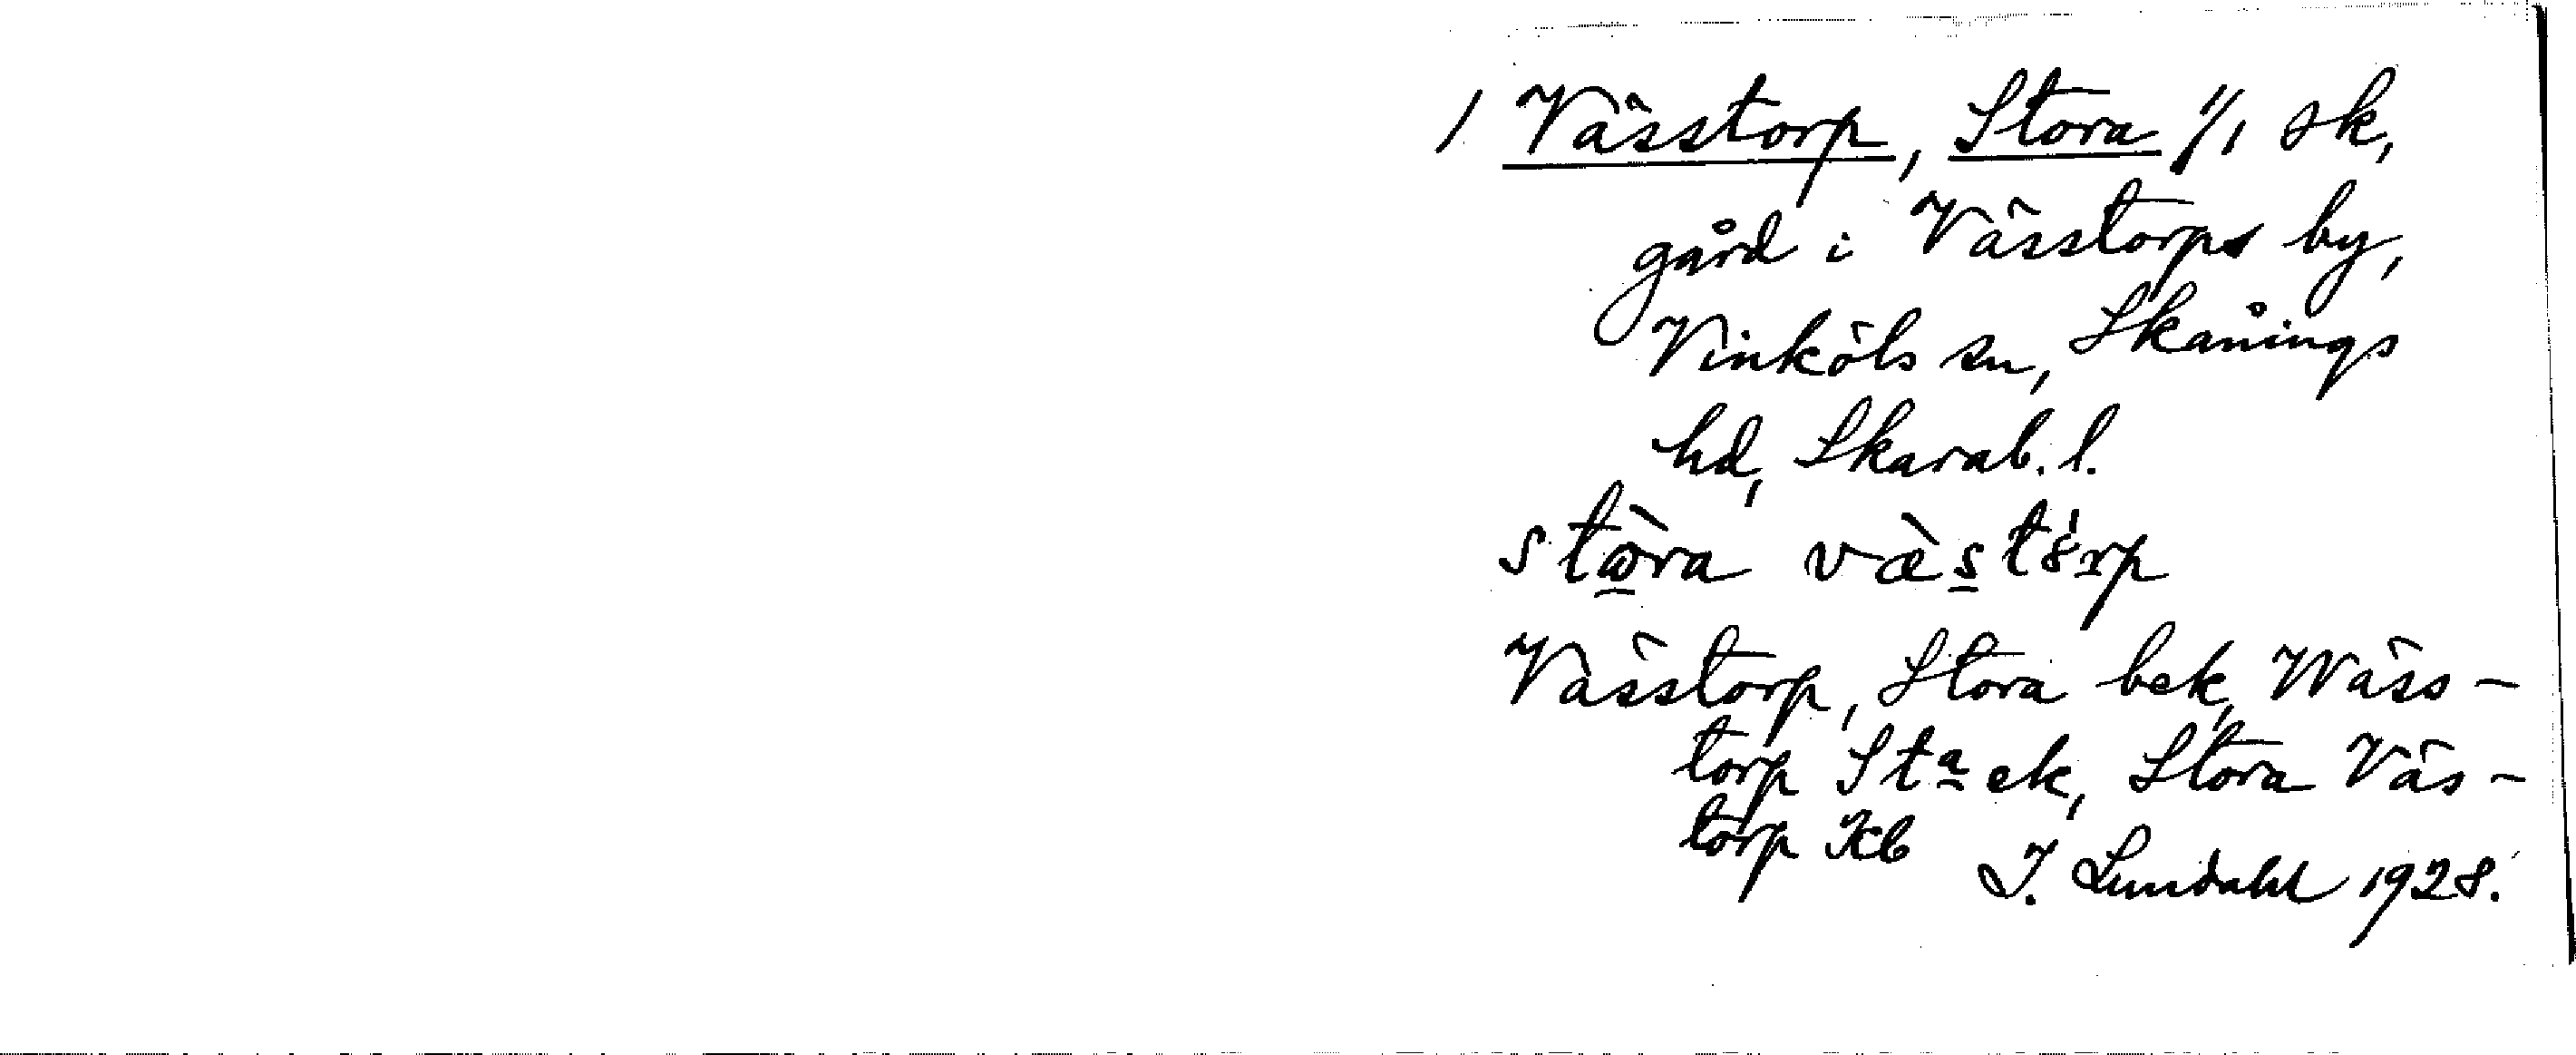 / Vässtorp, Stora 1/1 sk,
gård i Vässtorps by,
Vinköls sn, Skånings
hd, Skarab. l.
stɷ̀ra væ̀st8́rp
Vässtorp, Stora bek, Wäss-
torp Sta ek, Stora Väs-
torp Kb
I. Lundahl 1928.